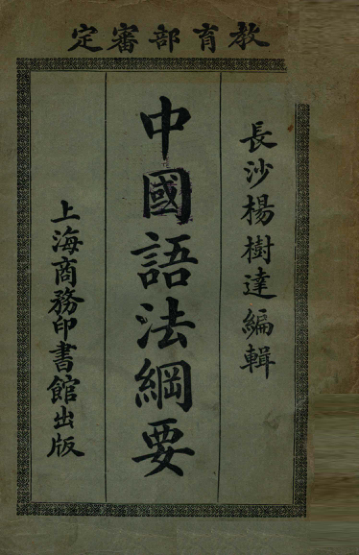 教育部審定
長沙楊樹達編輯
中國語法綱要
上海商務印書館出版